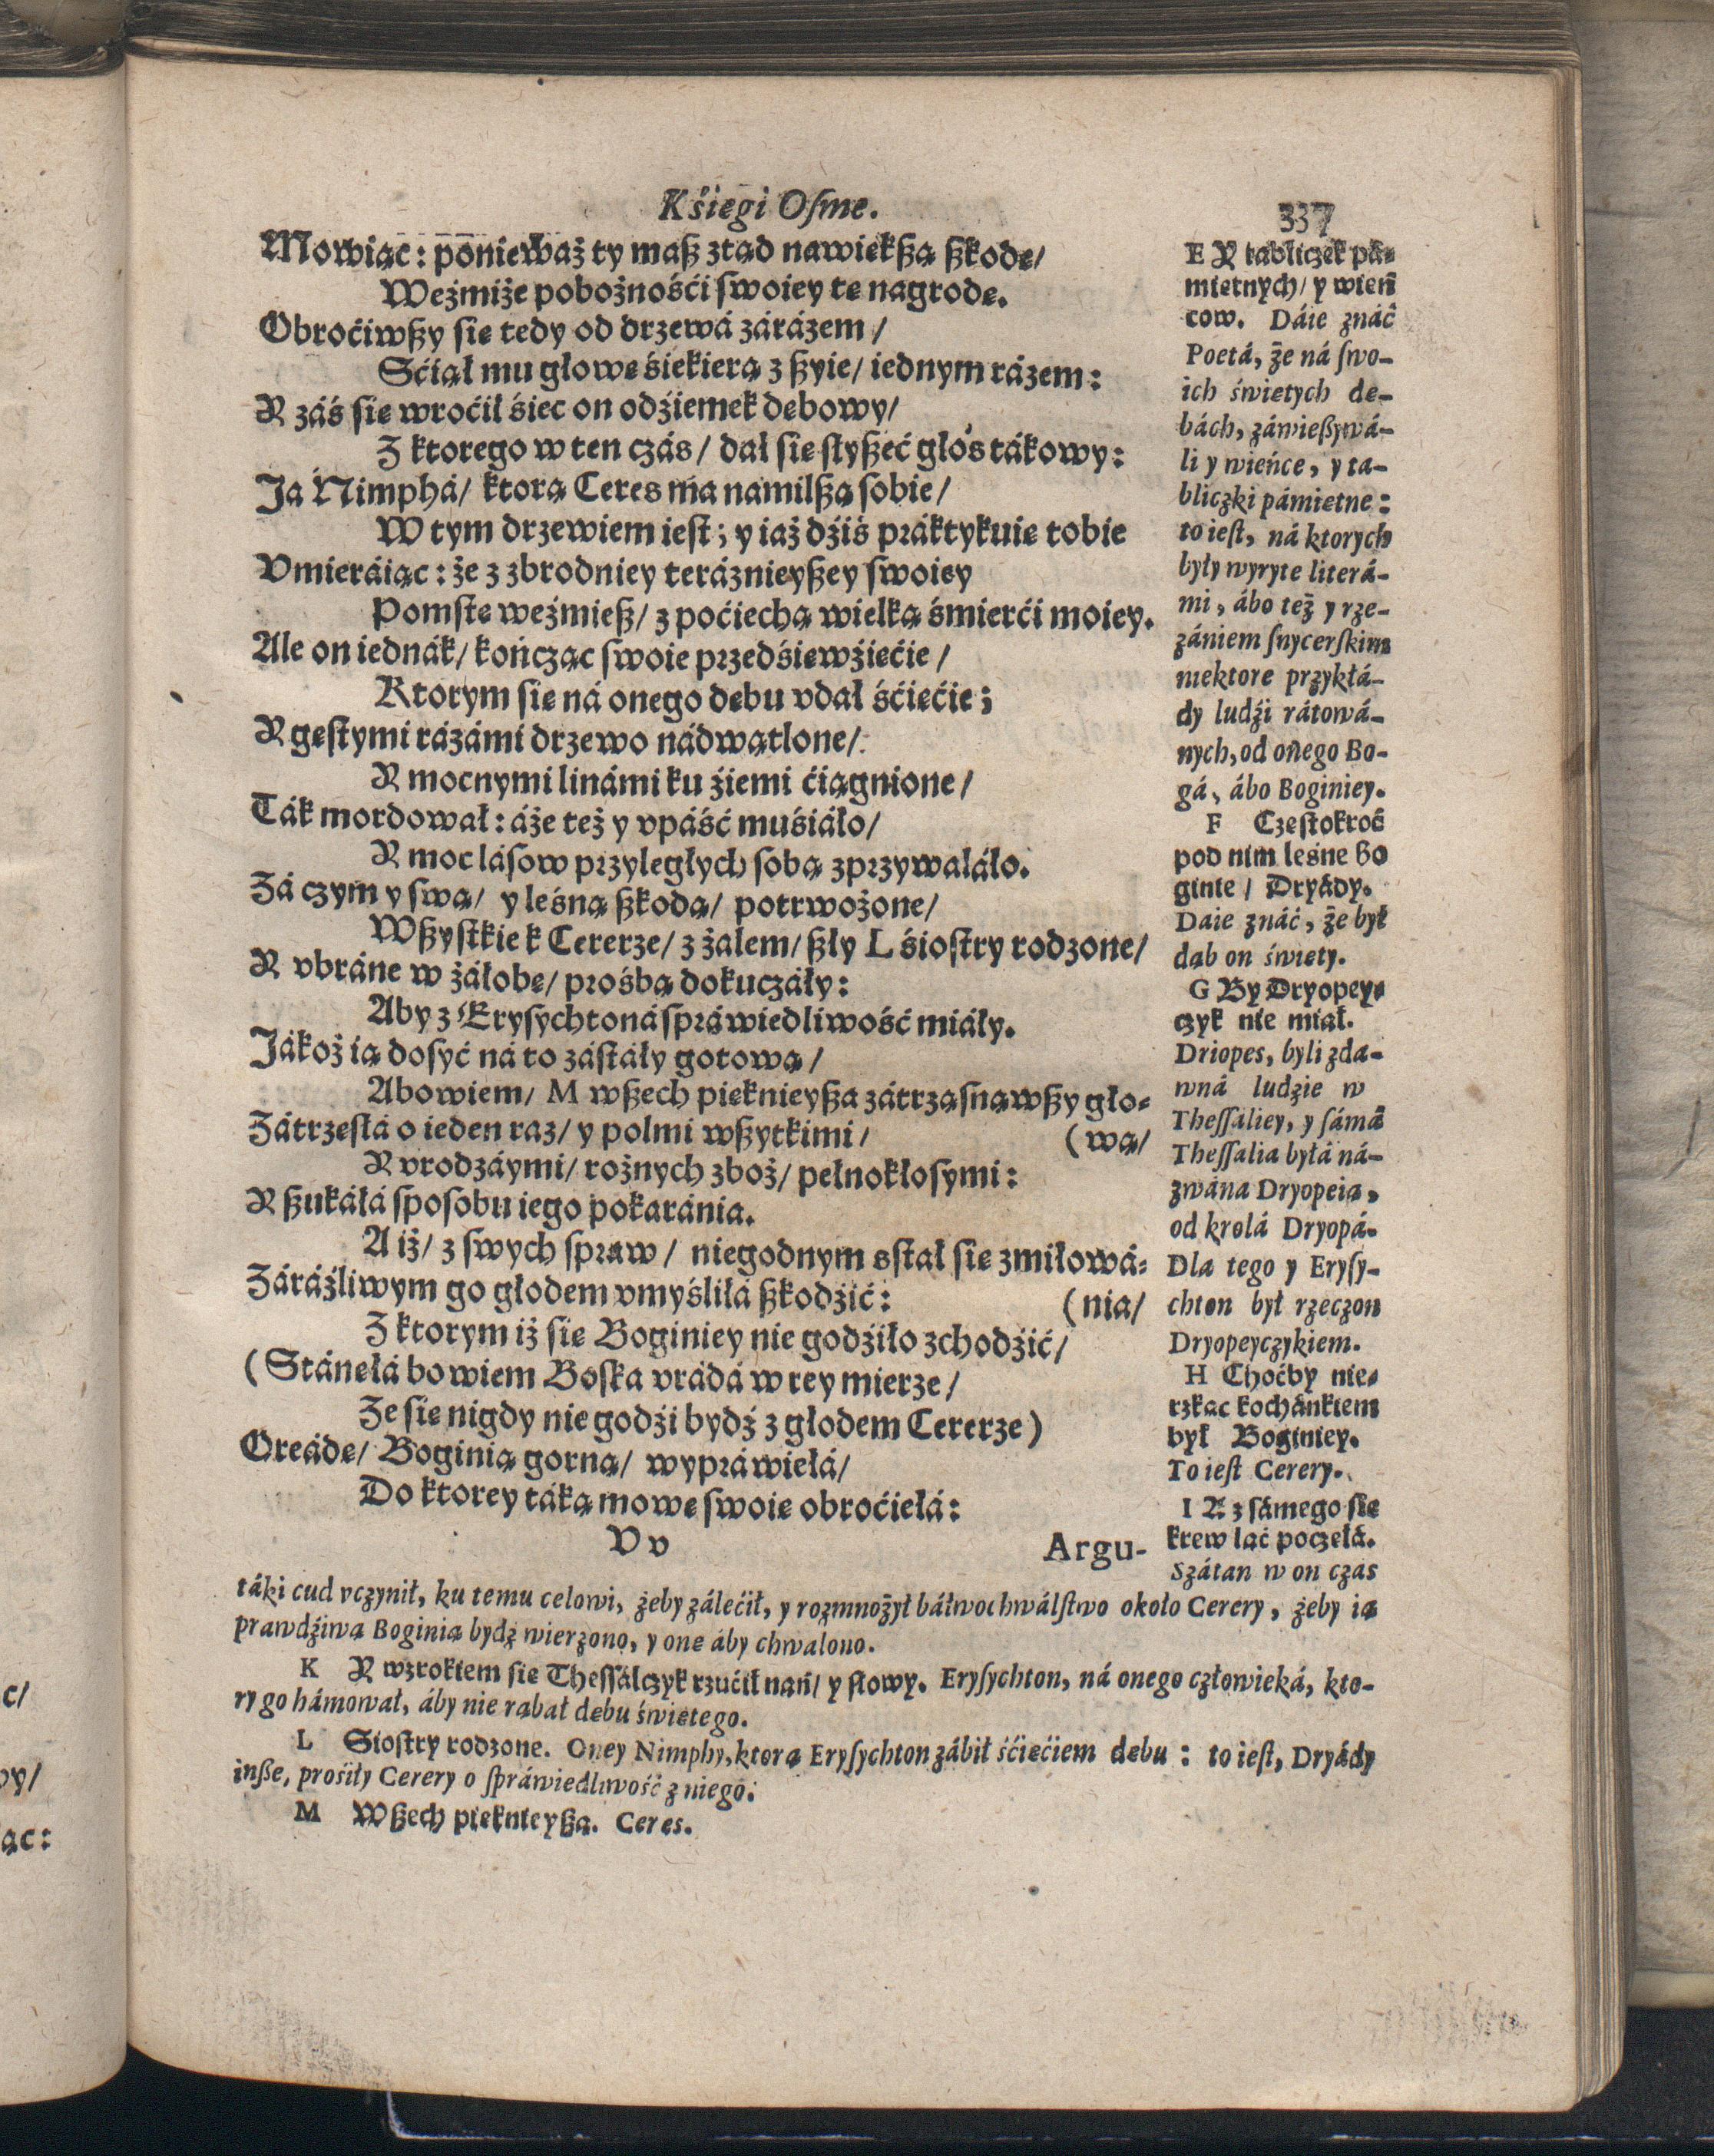 Kśięgi Oſme.
337
Mowiąc: ponieważ ty maß ztąd nawiękßą ßkodę/
Weźmiże pobożnośći ſwoiey tę nagrodę.
Obroćiwßy ſię tedy od drzewá zárázem/
Sćiął mu głowę śiekierą z ßyie/ iednym rázem:
Y záś ſię wroćił śiec on odźiemek dębowy/
Z ktorego w ten czás/ dał ſię ſłyßeć głos tákowy:
Ja Nimphá/ ktorą Ceres ma namilßą ſobie/
W tym drzewiem ieſt; y iaż dźiś práktykuię tobie
Vmieráiąc: że z zbrodniey teráznieyßey ſwoiey
Pomſtę weźmieß/ z poćiechą wielką śmierći moiey.
Ale on iednák/ kończąc ſwoie przedśięwźięćie/
Ktorym ſię ná onego dębu vdał śćięćie;
Y gęſtymi rázámi drzewo nádwątlone/
Y mocnymi linámi ku źiemi ćiągnione/
Ták mordował: áże też y vpáść muśiáło/
Y moc láſow przyległych ſobą zprzywaláło.
Zá czym y ſwą/ y leśną ßkodą/ potrwożone/
Wßyſtkie k Cererze/ z żalem/ ßły L śioſtry rodzone/
Y vbráne w żáłobę/ prośbą dokuczáły:
Aby z Eryſychtoná ſpráwiedliwość miáły.
Jákoż ią dosyć ná to záſtáły gotową/
Abowiem/ M wßech pięknieyßa zátrząſnąwßy gło-
Zátrzęſłá o ieden raz/ y polmi wßytkimi/
(wą/
Y vrodzáymi/ rożnych zboż/ pełnokłoſymi:
Y ßukáłá ſpoſobu iego pokaránia.
A iż/ z ſwych ſpraw/ niegodnym sſtał ſię zmiłowá-
Záráźliwym go głodem vmyśliłá ßkodźić:
(nia/
Z ktorym iż ſię Boginiey nie godźiło zchodźić/
(Stánęłá bowiem Boſka vrádá w tey mierze/
Ze ſię nigdy nie godźi bydź z głodem Cererze)
Oreádę/ Boginią gorną/ wypráwiełá/
Do ktorey táką mowę ſwoię obroćiełá:
V v
Argu-
E Y tabliczek pá-
miętnych/ y wień
cow. Dáie znáć
Poetá, że ná ſwo-
ich świętych dę-
bách, záwießywá-
li y wieńce, y ta-
bliczki pámiętne:
to ieſt, ná ktorych
były wyryte literá-
mi, ábo też y rze-
zániem ſnycerſkim
niektore przykłá-
dy ludźi rátowá-
nych, od onego Bo-
gá, ábo Boginiey.
F Częſtokroć
pod nim leśne Bo
ginie/ Dryády.
Daie znáć, że był
dąb on święty.
G By Dryopey-
czyk nie miał.
Driopes, byli zda-
wná ludzie w
Theſſáliey, y ſámá
Theſſalia byłá ná-
zwána Dryopeią,
od krolá Dryopá.
Dla tego y Eryſy-
chton był rzeczon
Dryopeyczykiem.
H Choćby nie-
rzkąc kochánkiem
był Boginiey.
To ieſt Cerery.
I Y z ſámego ſię
krew lać poczęłá.
Szátan w on czas
táki cud vczynił, ku temu celowi, żeby zálećił, y rozmnożył báłwochwálſtwo około Cerery, żeby ią
prawdźiwą Boginią bydź wierzono, y onę áby chwalono.
K Y wzrokiem ſię Theſſálczyk rzućił nań/ y ſłowy. Eryſychton, ná onego człowieká, kto-
ry go hámował, áby nie rąbał dębu świętego.
L Sioſtry rodzone. Oney Nimphy, ktorą Eryſychton zábił śćięćiem dębu: to ieſt, Dryády
inße, prośiły Cerery o ſpráwiedliwość z niego.
M Wßech pięknieyßa. Ceres.
c/
wy/
ąc: